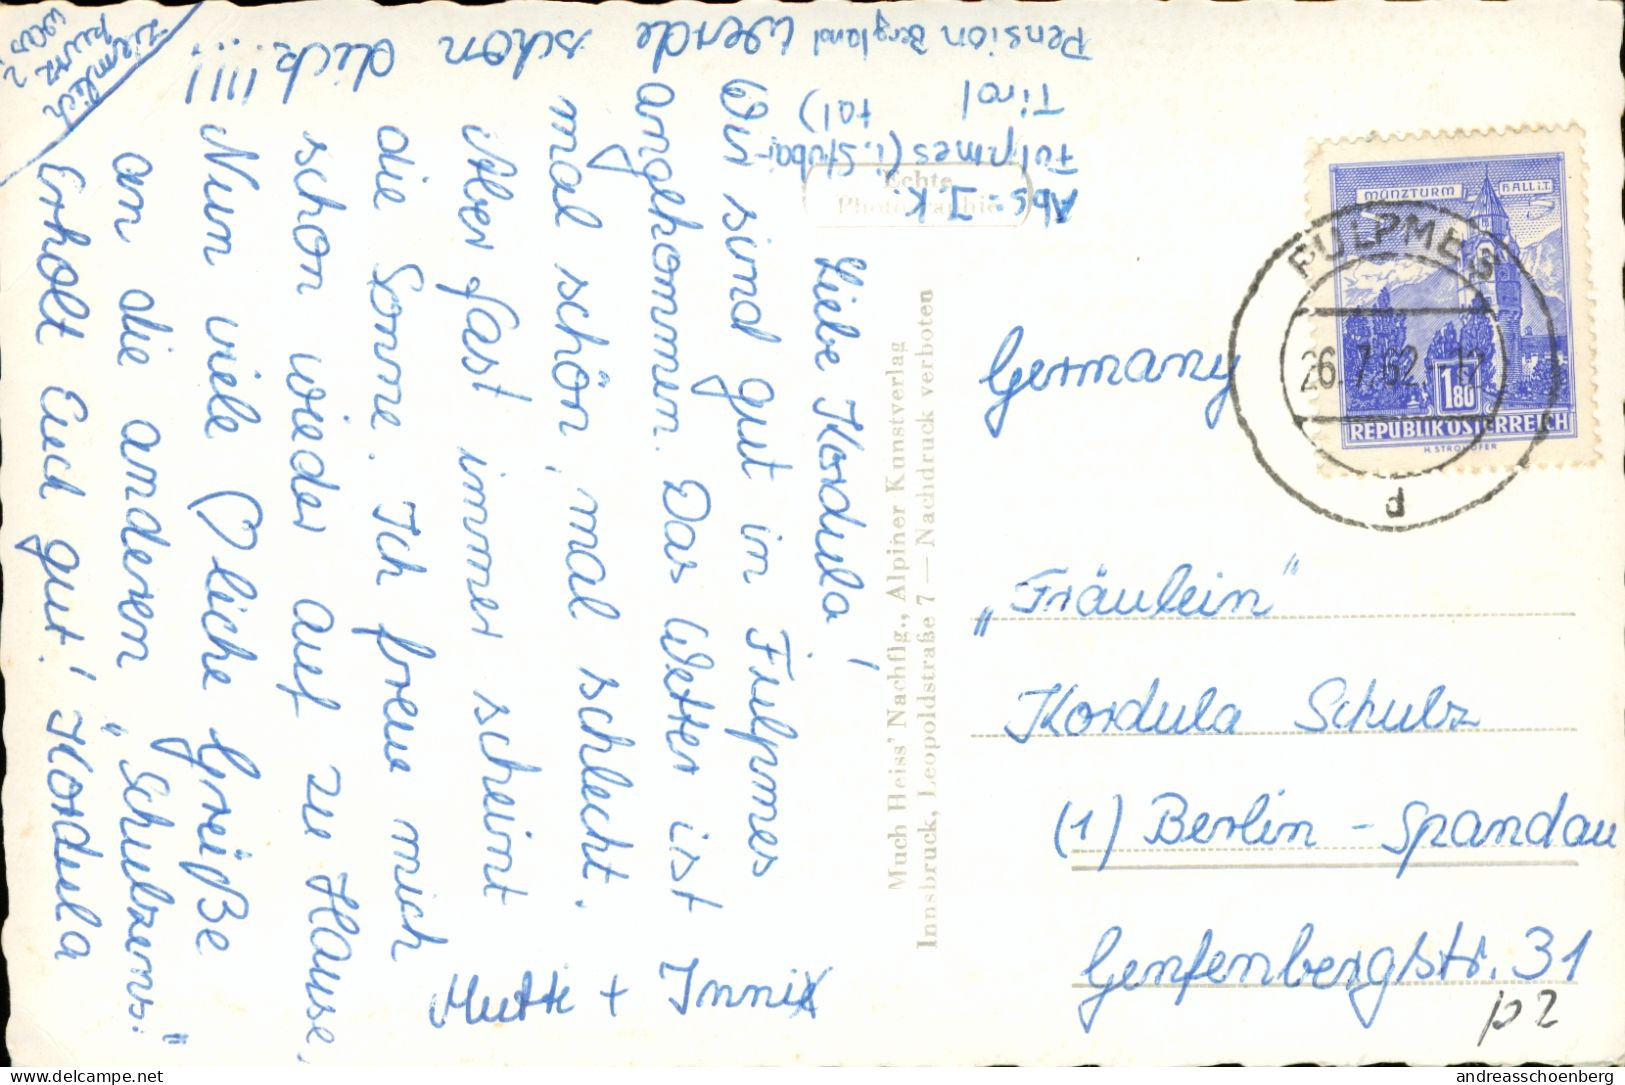 Abs.: J.K.
Fulpmes (i. Stubai-
tal)
Tirol
Pension Bergland
Liebe Kordula!
Wir sind gut in Fulpmes
angekommen. Das Wetter ist
mal schön, mal schlecht.
Aber fast immer scheint
die Sonne. Ich freue mich
schon wieder auf zu Hause,
Nun viele ♡liche Grüße
an die anderen „Schulzens."
Erholt Euch gut! Kordula
Werde schon dick!!!!...
ziemlich
purz
was?
Mutti +
Echte
Photographie
Much Heiss' Nachflg., Alpiner Kunstverlag
Innsbruck, Leopoldstraße 7 — Nachdruck verboten
MÜNZTURM HALL i.T.
1.80
REPUBLIK ÖSTERREICH
H. STROHOFER
FULPMES
26.7.62
d
Germany
„Fräulein"
Kordula Schulz
(1) Berlin - Spandau
Genfenbergstr. 31
p2
delcampe.net
andreasschoenberg